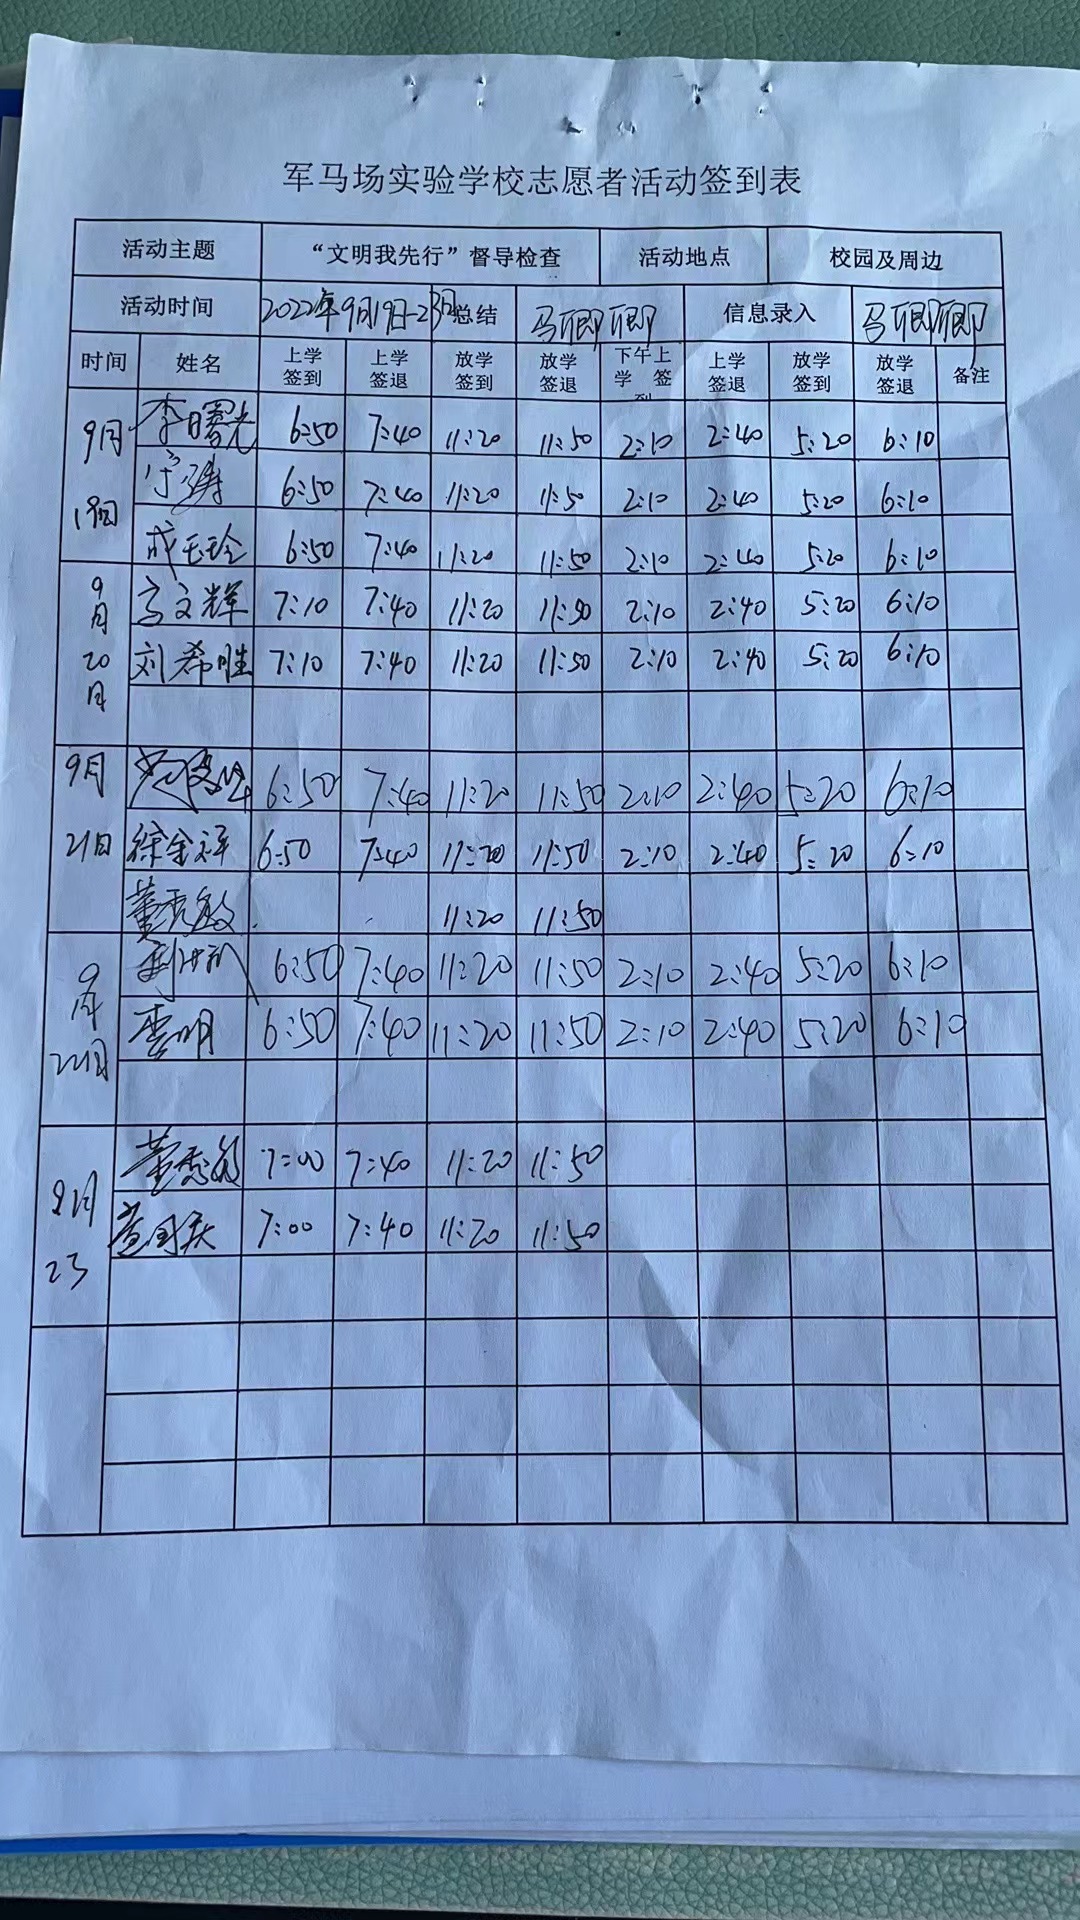 军马场实验学校志愿者活动签到表
活动主题 “文明我先行”督导检查 活动地点 校园及周边
活动时间 2022年9月19日-23日 总结 马卿卿 信息录入 马卿卿
时间 姓名 上学签到 上学签退 放学签到 放学签退 下午上学签到 上学签退 放学签到 放学签退 备注
9月19日 李曙光 6:50 7:40 11:20 11:50 2:10 2:40 5:20 6:10
宁涛 6:50 7:40 11:20 11:50 2:10 2:40 5:20 6:10
成玉玲 6:50 7:40 11:20 11:50 2:10 2:40 5:20 6:10
9月20日 高文辉 7:10 7:40 11:20 11:50 2:10 2:40 5:20 6:10
刘希胜 7:10 7:40 11:20 11:50 2:10 2:40 5:20 6:10
9月21日 6:50 7:40 11:20 11:50 2:10 2:40 5:20 6:10
徐金祥 6:50 7:40 11:20 11:50 2:10 2:40 5:20 6:10
董秀敏 11:20 11:50
9月22日 6:50 7:40 11:20 11:50 2:10 2:40 5:20 6:10
李明 6:50 7:40 11:20 11:50 2:10 2:40 5:20 6:10
9月23 董秀敏 7:00 7:40 11:20 11:50
7:00 7:40 11:20 11:50